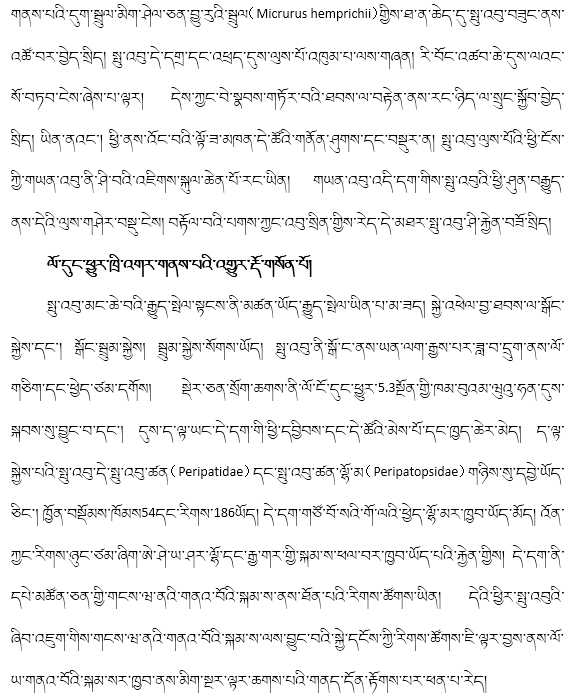 གནས་པའི་དུག་སྦྲུལ་མིག་ཤེལ་ཅན་བྱུ་རུའི་སྦྲུལ(Micrurus hemprichii)གྱིས་ཐ་ན་ཆེད་དུ་སྤུ་འབུ་བཟུང་ནས་
འཚོ་བར་བྱེད་སྲིད། སྤུ་འབུ་དེ་དགྲ་དང་འཕྲད་དུས་ལུས་པོ་འཁུམ་པ་ལས་གཞན། རི་བོང་འཚབ་ཆེ་དུས་ལའང་
སོ་བཏབ་ངེས་ཞེས་པ་ལྟར། དེས་ཀྱང་བེ་སྣབས་གཏོར་བའི་ཐབས་ལ་བརྟེན་ནས་རང་ཉིད་ལ་སྲུང་སྐྱོབ་བྱེད་
སྲིད། ཡིན་ནའང་། ཕྱི་ནས་འོང་བའི་ལྟོ་ཟ་མཁན་དེ་ཚོའི་གནོན་ཤུགས་དང་བསྡུར་ན། སྤུ་འབུ་ལུས་པོའི་ཕྱི་ངོས་
ཀྱི་གཡན་འབུ་ནི་ཤི་བའི་འཇིགས་སྐུལ་ཆེན་པོ་རང་ཡིན། གཡན་འབུ་འདི་དག་གིས་སྤུ་འབུའི་ཕྱི་ཤུན་བརྒྱུད་
ནས་དེའི་ལུས་གཤེར་བསྡུ་ངེས། བརྟོལ་བའི་པགས་ཀྱང་འབུ་སྲིན་གྱིས་རེད་དེ་མཐར་སྤུ་འབུ་ཤི་རྐྱེན་བཟོ་སྲིད།
ལོ་དུང་ཕྱུར་ཁྲི་འགར་གནས་པའི་འགྱུར་རྡོ་གསོན་པོ།
སྤུ་འབུ་མང་ཆེ་བའི་རྒྱུད་སྤེལ་སྟངས་ནི་མཚན་ཡོད་རྒྱུད་སྤེལ་ཡིན་པ་མ་ཟད། སྐྱེ་འཕེལ་བྱ་ཐབས་ལ་སྒོང་
སྐྱེས་དང་། སྒོང་སྦྲུམ་སྐྱེས། སྦྲུམ་སྐྱེས་སོགས་ཡོད། སྤུ་འབུ་ནི་སྒོ་ང་ནས་ཡན་ལག་རྒྱས་པར་ཟླ་བ་དྲུག་ནས་ལོ་
གཅིག་དང་ཕྱེད་ཙམ་དགོས། སྡེར་ཅན་སྲོག་ཆགས་ནི་ལོ་ངོ་དུང་ཕྱུར་5.3སྔོན་གྱི་ཁམ་བུའམ་ཝུའུ་ཧན་དུས་
སྐབས་སུ་བྱུང་བ་དང་། དུས་ད་ལྟ་ཡང་དེ་དག་གི་ཕྱི་དབྱིབས་དང་དེ་ཚོའི་མེས་པོ་དང་ཁྱད་ཆེར་མེད། ད་ལྟ་
སྐྱེས་པའི་སྤུ་འབུ་དེ་སྤུ་འབུ་ཚན(Peripatidae)དང་སྤུ་འབུ་ཚན་ལྷོ་མ(Peripatopsidae)གཉིས་སུ་དབྱེ་ཡོད་
ཅིང་། ཁྱོན་བསྡོམས་ཁོམས54དང་རིགས་186ཡོད། དེ་དག་གཙོ་བོ་སའི་གོ་ལའི་ཕྱེད་ལྷོ་མར་ཁྱབ་ཡོད་མོད། འོན་
ཀྱང་རིགས་ཉུང་ཙམ་ཞིག་ཨེ་ཤེ་ཡ་ཤར་ལྷོ་དང་རྒྱ་གར་གྱི་སྐམ་ས་ཕལ་བར་ཁྱབ་ཡོད་པའི་རྐྱེན་གྱིས། དེ་དག་ནི་
དཔེ་མཚོན་ཅན་གྱི་གངས་ཝ་ནའི་གནའ་བོའི་སྐམ་ས་ནས་ཐོན་པའི་རིགས་ཚོགས་ཡིན། དེའི་ཕྱིར་སྤུ་འབུའི་
ཞིབ་འཇུག་གིས་གངས་ཝ་ནའི་གནའ་བོའི་སྐམ་ས་ལས་བྱུང་བའི་སྐྱེ་དངོས་ཀྱི་རིགས་ཚོགས་ཇི་ལྟར་བྱས་ནས་ལོ་
ཡ་གནའ་བོའི་སྐམ་སར་ཁྱབ་ནས་མིག་སྔར་ལྟར་ཆགས་པའི་གནད་དོན་རྟོགས་པར་ཕན་པ་རེད།